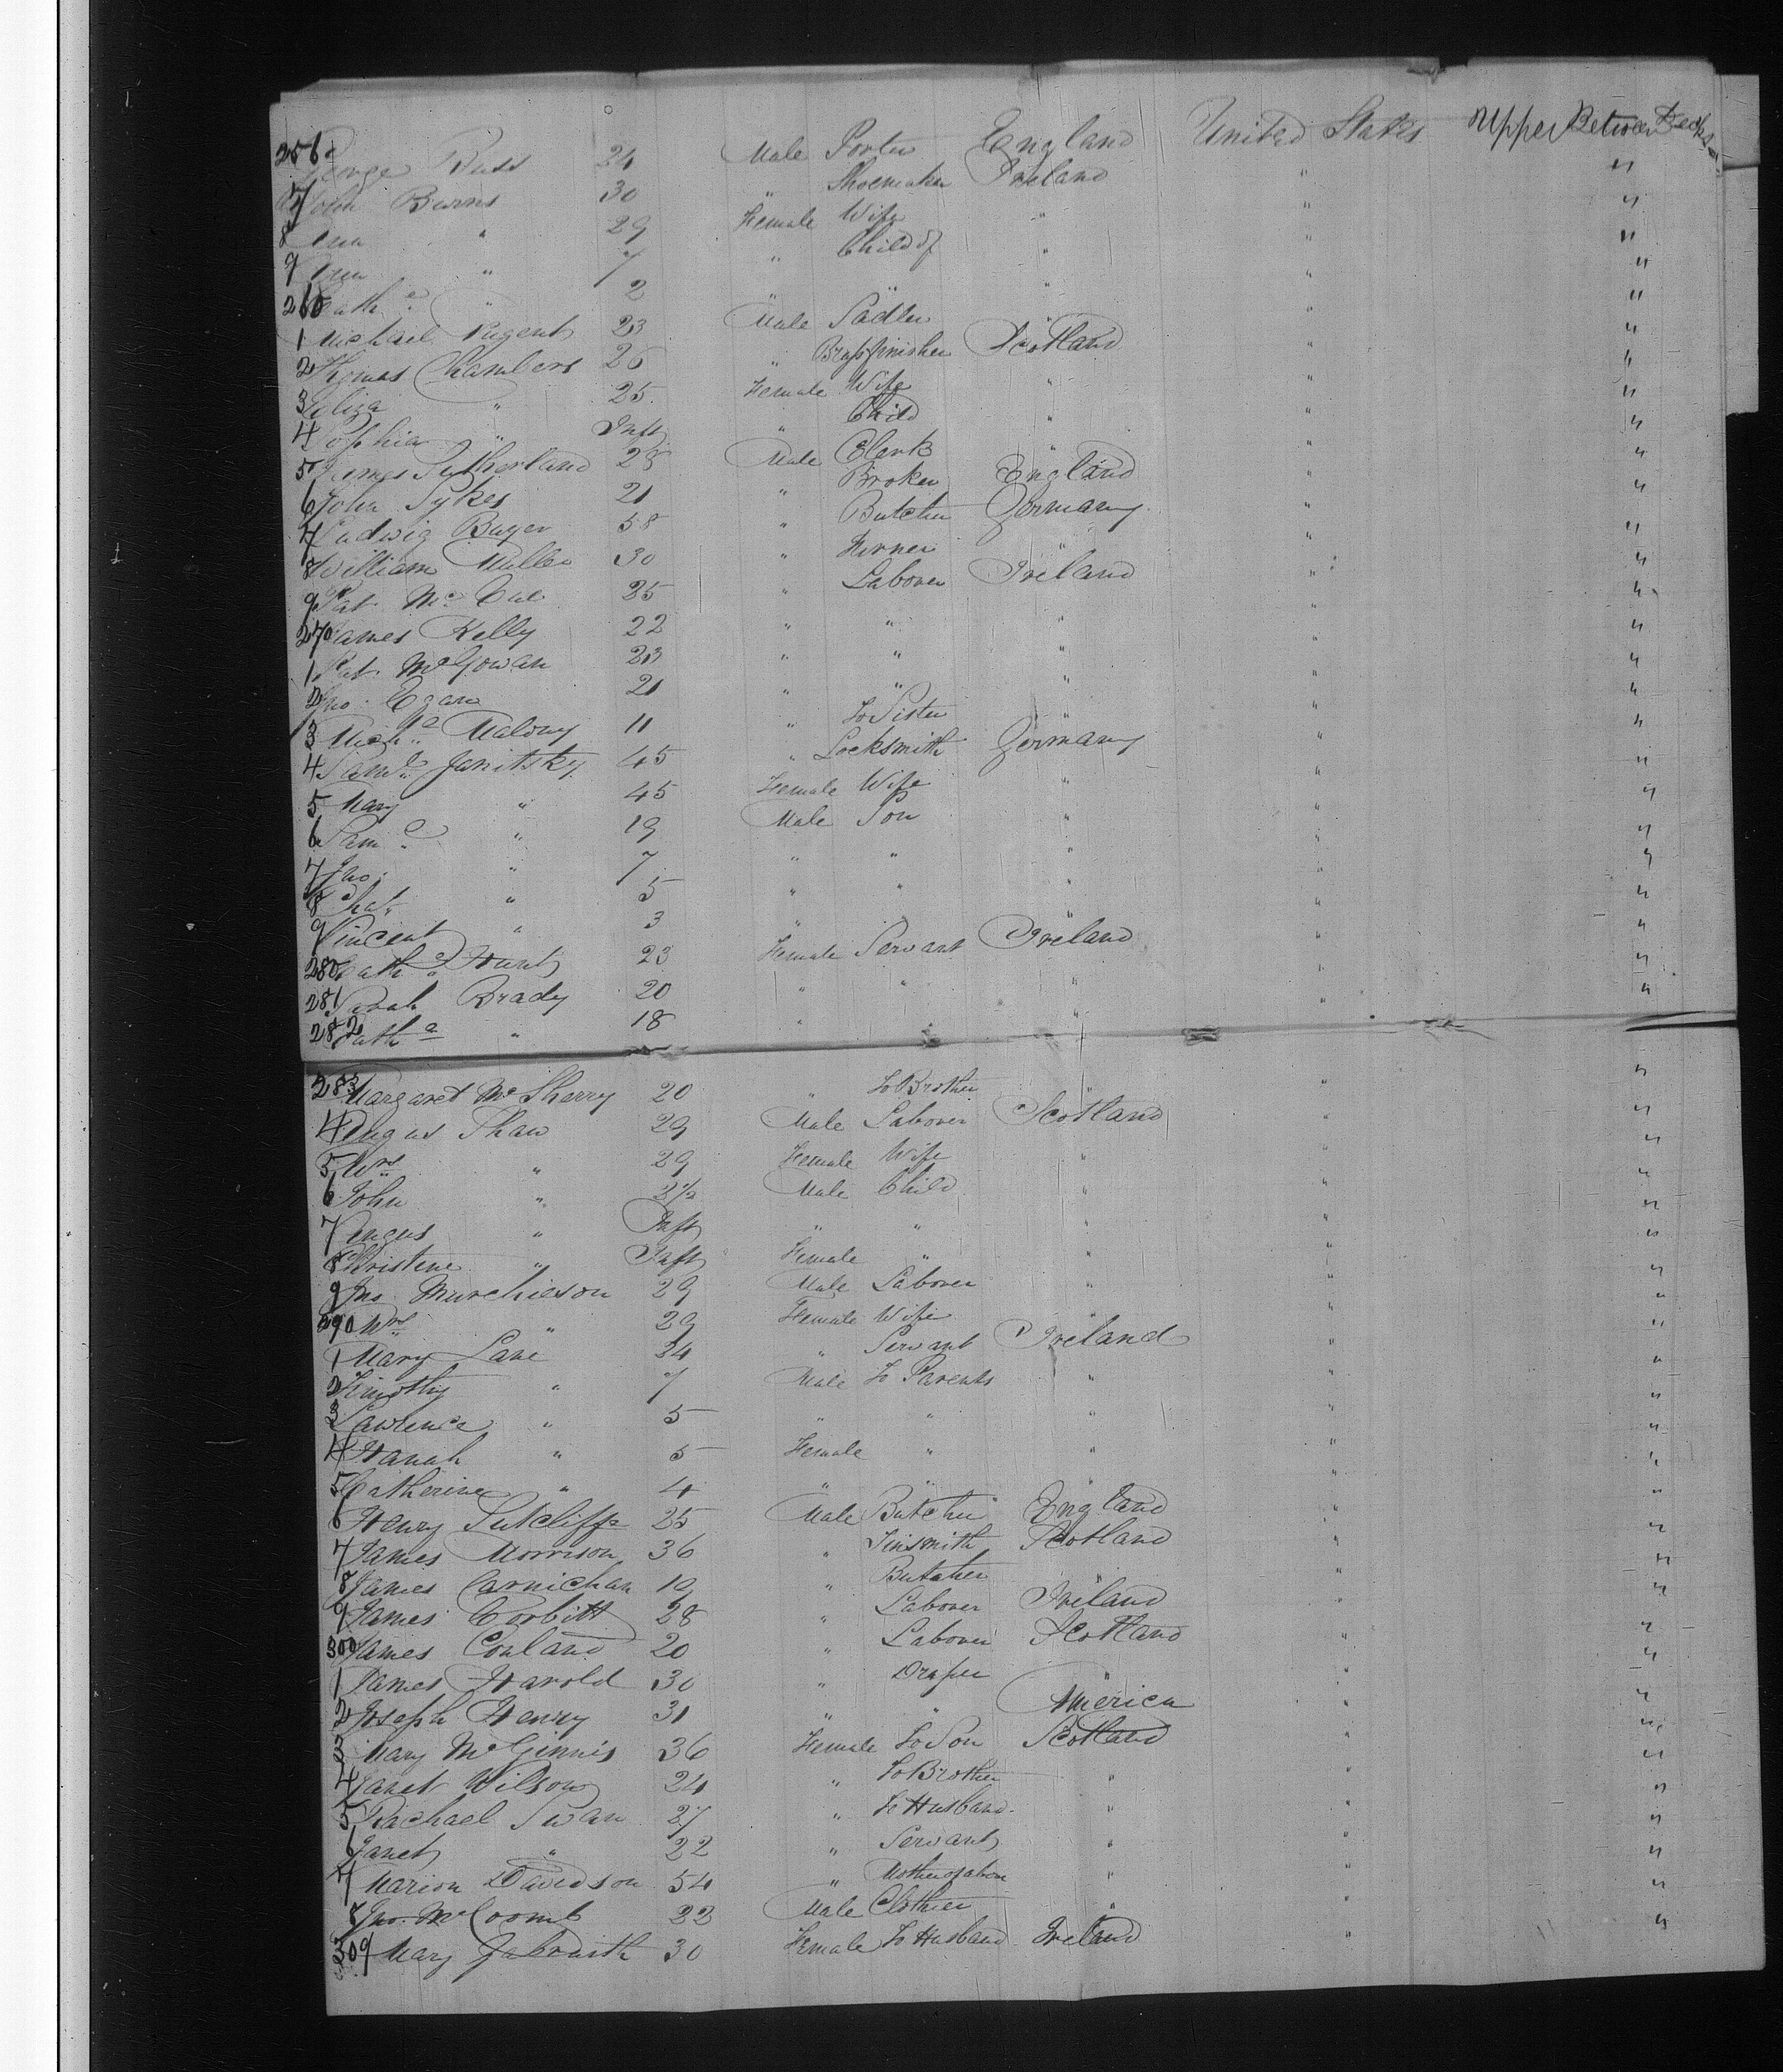 256 George Bass 24 Male Porter England United States Upper Between Decks
7 John Burns 30 " Shoemaker Ireland " "
8 Ann " 29 Female Wife " " "
9 Ann " 7 " Child of " " "
260 Cathe " 2 " " " " "
1 Michael Nugent 23 Male Sadler " " "
2 Thomas Chambers 25 " Brassfinisher Scotland " "
3 Eliza " 25 Female Wife " " "
4 Sophia " Inft " Child " " "
5 James Sutherland 28 Male Clerk " " "
6 John Sykes 21 " Broker England " "
7 Ludwig Bayer 58 " Butcher Germany " "
8 William Muller 30 " " " "
9 Pat Mc Cue 25 " Laborer Ireland " "
270 James Kelly 22 " " " " "
1 Pat McGowan 23 " " " " "
2 Jno. Egan 21 " " " " "
3 Malony 11 " To Sister " " "
4 Saml Janitsky 45 " Locksmith Germany " "
5 Mary " 45 Female Wife " " "
6 Saml " 19 Male Son " " "
7 Jno. " 7 " " " " "
8 " 5 " " " " "
9 Vincent " 3 " " " " "
280 Cathe Hunt 23 Female Servant Ireland " "
281 Sarah Brady 20 " " " " "
282 Cathe " 18 " " " " "
283 Margaret McSherry 20 " To Brother " " "
4 Angus Shaw 29 Male Laborer Scotland " "
5 Mrs " 29 Female Wife " " "
6 John " 2½ Male Child " " "
7 Angus " Inft " " " " "
8 Christine " Inft Female " " " "
9 Jno. Murchieson 29 Male Laborer " " "
290 Mrs " 29 Female Wife " " "
1 Mary Lane 34 " Servant Ireland " "
2 Timothy " 7 Male To Parents " " "
3 Lawrence " 5 " " " " "
4 Hanah " 5 Female " " " "
5 Catherine " 4 " " " " "
6 Henry Sutcliffe 25 Male Butcher England " "
7 James Morrison 36 " Tinsmith Scotland " "
8 James Carnichan 19 " Butcher " " "
9 James Corbitt 28 " Laborer Ireland " "
300 James Conland 20 " Laborer Scotland " "
1 James Harold 30 " Draper " " "
2 Joseph Henry 31 " " America " "
3 Mary McGinnis 36 Female To Son Scotland " "
4 Janet Wilson 24 " To Brother " " "
5 Rachael Swan 27 " To Husband " " "
6 Janet " 22 " Servant " " "
7 Marion Davidson 54 " Mother of above " " "
8 Jno. McCoomb 22 Male Clothier " " "
309 Mary Galbraith 30 Female To Husband Ireland " "